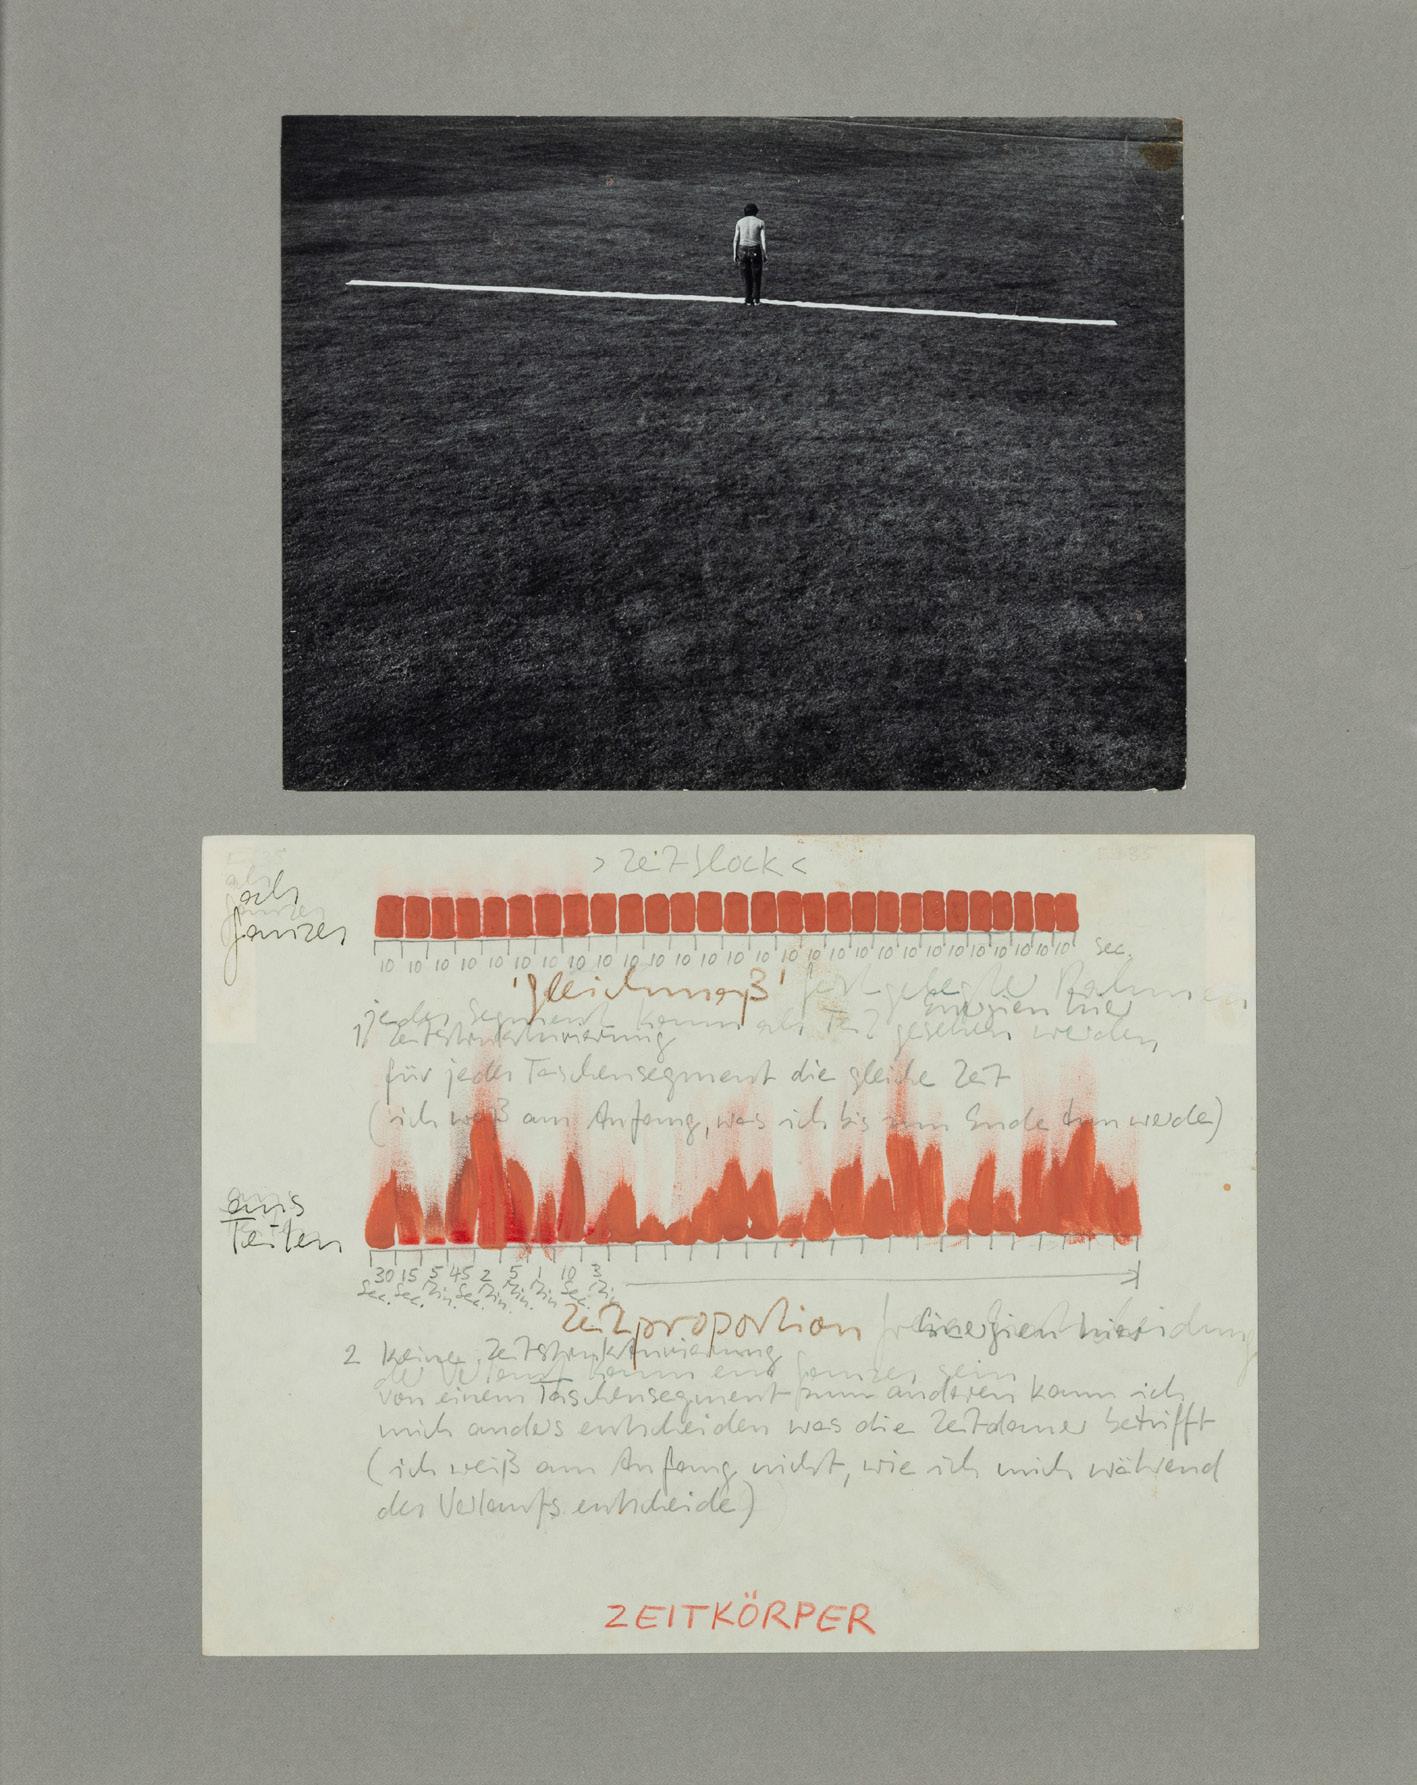 > Zeitblock <
als
Ganzes
10 10 10 10 10 10 10 10 10 10 10 10 10 10 10 10 10 10 10 10 10 10 10 10 10 10 10 sec.
'Gleichmaß' festgelegter Rahmen
Energien hier
jedes Segment kann als Teil gesehen werden,
1) Zeitstrukturierung
für jedes Taschensegment die gleiche Zeit
(ich weiß am Anfang, was ich bis zum Ende tun werde)
aus
Teilen
30 15 5 45 2 5 1 10 3
Sec. Sec. Min. Sec. Min. Min. Min. Sec. Min.
Zeitproportion freie Entscheidung
Energien hier
2 keine Zeitstrukturierung
der Verlauf kann ein Ganzes sein
von einem Taschensegment zum anderen kann ich
mich anders entscheiden was die Zeitdauer betrifft
(ich weiß am Anfang nicht, wie ich mich während
des Verlaufs entscheide)
ZEITKÖRPER